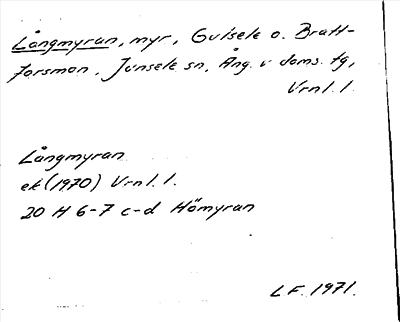 Långmyran, myr, Gulsele o. Bratt-
forsmon, Junsele sn, Ång. v doms. tg,
Vrnl. l.
Långmyran
ek (1970) Vrnl. l.
20 H 6-7 c-d Hömyran
LF. 1971.